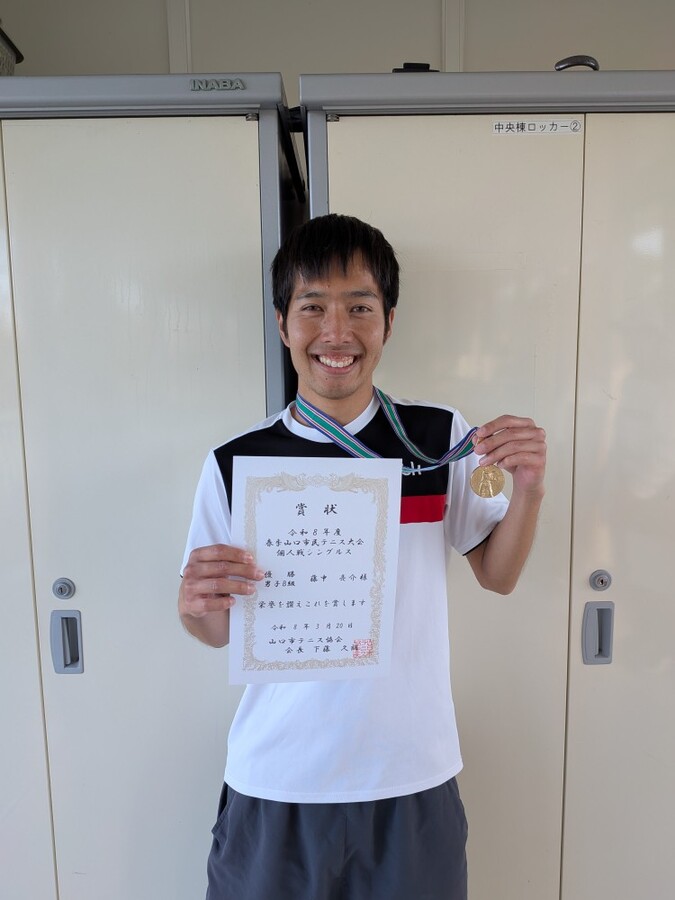 INABA
中央棟ロッカー②
賞状
令和8年度
春季山口市民テニス大会
個人戦シングルス
優勝
男子B組 藤中 様
栄誉を讃えこれを賞します
令和8年3月20日
山口市テニス協会
会長 下藤